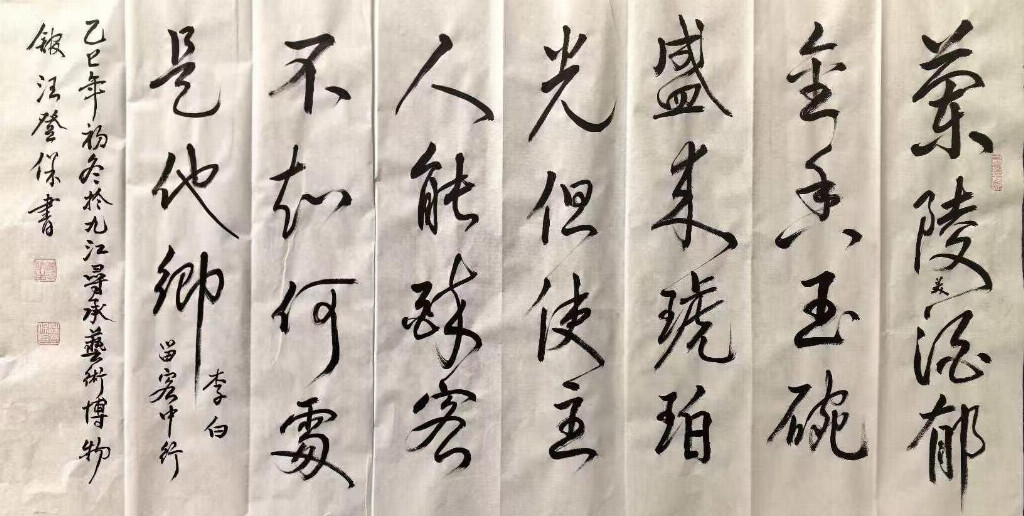 蘭陵美酒郁
金香玉碗
盛来琥珀
光但使主
人能醉客
不知何處
是他鄉
李白
留客中行
乙巳年初冬於九江尋承藝術博物
館汪登保書